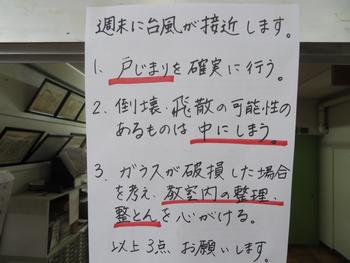 週末に台風が接近します。
1. 戸じまりを確実に行う。
2. 倒壊・飛散の可能性の
あるものは中にしまう。
3. ガラスが破損した場合
を考え、教室内の整理、
整とんを心がける。
以上3点お願いします。